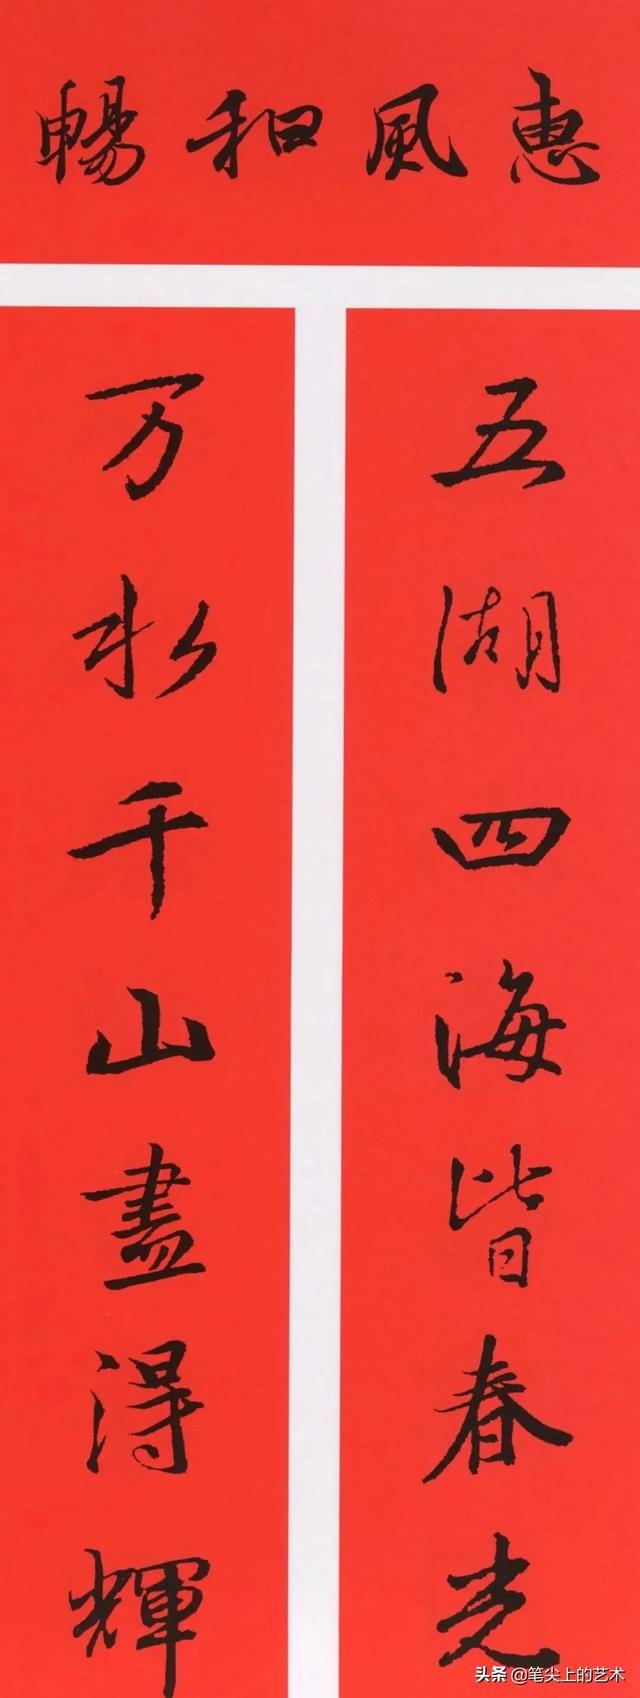 惠風和暢
五湖四海皆春光
万水千山盡得輝
头条 @笔尖上的艺术